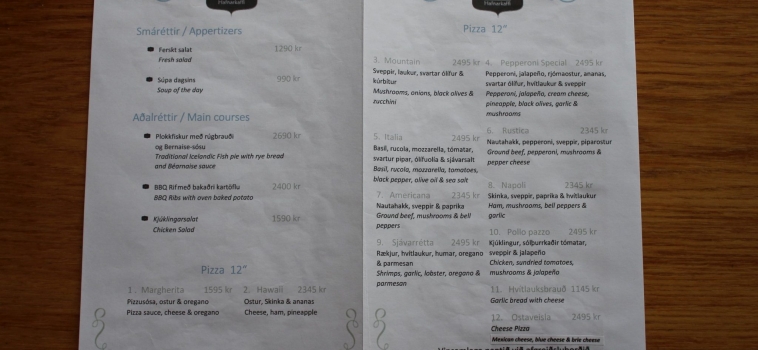 Smáréttir / Appertizers
Ferskt salat 1290 kr
Fresh salad
Súpa dagsins 990 kr
Soup of the day
Aðalréttir / Main courses
Plokkfiskur með rúgbrauði 2690 kr
og Bernaise-sósu
Traditional Icelandic Fish pie with rye bread
and Béarnaise sauce
BBQ Rif með bakaðri kartöflu 2400 kr
BBQ Ribs with oven baked potato
Kjúklingarsalat 1590 kr
Chicken Salad
Pizza 12"
1. Margherita 1595 kr
Pizzusósa, ostur & oregano
Pizza sauce, cheese & oregano
2. Hawaii 2345 kr
Ostur, Skinka & ananas
Cheese, ham, pineapple
Pizza 12"
3. Mountain 2495 kr
Sveppir, laukur, svartar ólífur &
kúrbítur
Mushrooms, onions, black olives &
zucchini
4. Pepperoni Special 2495 kr
Pepperoni, jalapeño, rjómaostur, ananas,
svartar ólífur, hvítlaukur & sveppir
Pepperoni, jalapeño, cream cheese,
pineapple, black olives, garlic &
mushrooms
5. Italia 2495 kr
Basil, rucola, mozzarella, tómatar,
svartur pipar, ólífuolía & sjávarsalt
Basil, rucola, mozzarella, tomatoes,
black pepper, olive oil & sea salt
6. Rustica 2345 kr
Nautahakk, pepperoni, sveppir, piparostur
Ground beef, pepperoni, mushrooms &
pepper cheese
7. Americana 2345 kr
Nautahakk, sveppir & paprika
Ground beef, mushrooms & bell
peppers
8. Napoli 2345 kr
Skinka, sveppir, paprika & hvítlaukur
Ham, mushrooms, bell peppers &
garlic
9. Sjávarrétta 2495 kr
Rækjur, hvítlaukur, humar, oregano
& parmesan
Shrimps, garlic, lobster, oregano &
parmesan
10. Pollo pazzo 2495 kr
Kjúklingur, sólþurrkaðir tómatar,
sveppir & jalapeño
Chicken, sundried tomatoes,
mushrooms & jalapeño
11. Hvítlauksbrauð 1145 kr
Garlic bread with cheese
12. Ostaveisla 2495 kr
Cheese Pizza
Mexican cheese, blue cheese & brie cheese